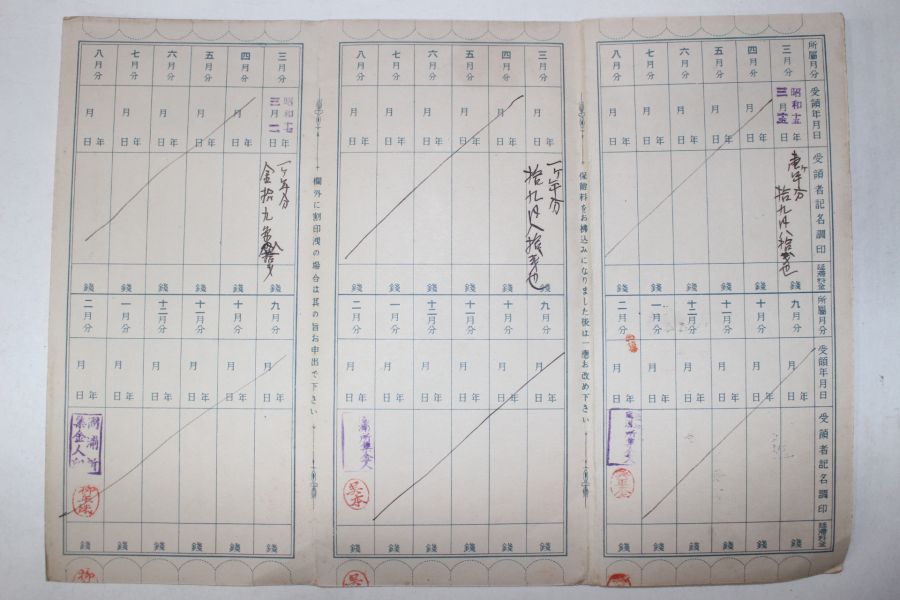 所屬月分
受領年月日
受領者記名調印
延滯料金
三月分
四月分
五月分
六月分
七月分
八月分
昭和十五年三月
年月日
月日
月日
月日
月日
月日
壹ヶ年分
拾九円八拾
錢
錢
錢
錢
錢
錢
所屬月分
受領年月日
受領者記名調印
延滯料金
九月分
十月分
十一月分
十二月分
一月分
二月分
年月日
年月日
年月日
年月日
年月日
年月日
錢
錢
錢
錢
錢
錢
保險料をお拂込みになりました後は一應お改め下さい
三月分
四月分
五月分
六月分
七月分
八月分
年月日
年月日
年月日
年月日
年月日
年月日
一ヶ年分
拾九円八拾
也
錢
錢
錢
錢
錢
錢
九月分
十月分
十一月分
十二月分
一月分
二月分
年月日
年月日
年月日
年月日
年月日
年月日
吳本
錢
錢
錢
錢
錢
錢
欄外に割印洩の場合は其の旨お申出で下さい
三月分
四月分
五月分
六月分
七月分
八月分
昭和十七年三月二日
年月日
年月日
年月日
年月日
年月日
一ヶ年分
金拾九
錢
錢
錢
錢
錢
錢
九月分
十月分
十一月分
十二月分
一月分
二月分
年月日
年月日
年月日
年月日
年月日
年月日
集金人
錢
錢
錢
錢
錢
錢
吳
柳